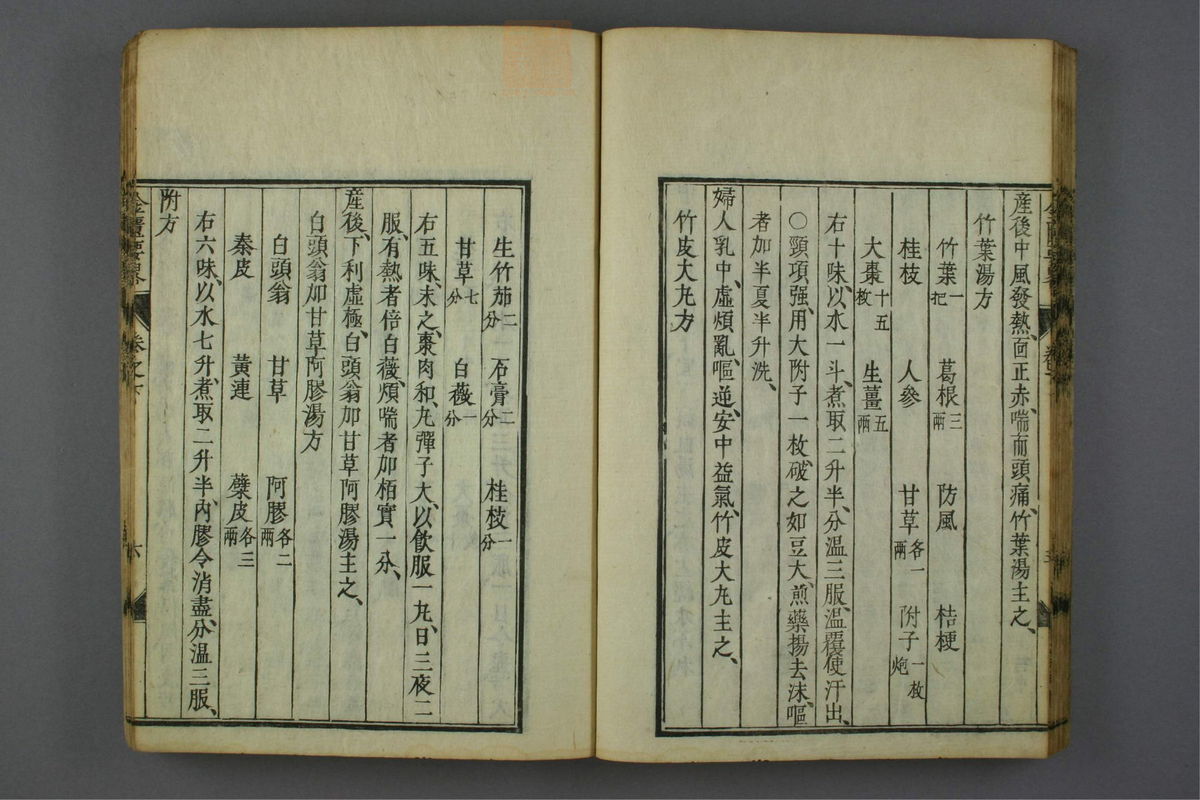 產後中風發熱、面正赤、喘而頭痛、竹葉湯主之、
竹葉湯方
竹葉一把 葛根三兩 防風 桔梗
桂枝 人參 甘草各一兩 附子一枚炮
大棗十五枚 生薑五兩
右十味、以水一斗、煮取二升半、分溫三服、溫覆使汗出、
○頸項强、用大附子一枚、破之如豆大、煎藥揚去沫、嘔
者加半夏半升洗、
婦人乳中、虛煩亂、嘔逆、安中益氣、竹皮大丸主之、
竹皮大丸方
生竹茹二分 石膏二分 桂枝一分
甘草七分 白薇一分
右五味、末之、棗肉和、丸彈子大、以飮服一丸、日三夜二
服、有熱者倍白薇、煩喘者加栢實一分、
產後、下利虛極、白頭翁加甘草阿膠湯主之、
白頭翁加甘草阿膠湯方
白頭翁 甘草 阿膠各二兩
秦皮 黃連 蘗皮各三兩
右六味、以水七升、煮取二升半、內膠令消盡、分溫三服、
附方
金匱要畧 卷之下 六